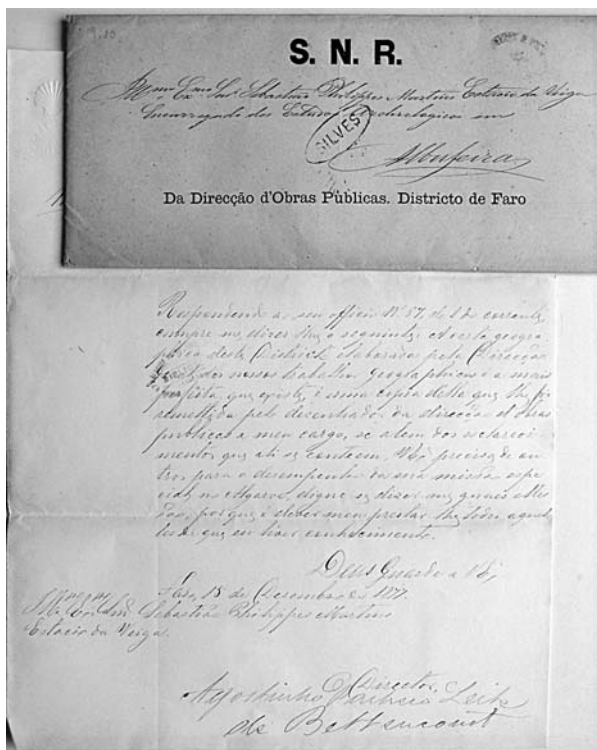 S. N. R.
Ill.mo Ex.mo Snr. Sebastião Philippes Martins Estacio da Veiga
Encarregado dos Estudos Archeologicos em
SILVES
Albufeira
Da Direcção d'Obras Públicas. Districto de Faro
Respondendo a seu officio Nº 57 de 1 do corrente,
cumpre me dizer lhe o seguinte: A carta geogra-
phica deste Districto elaborada pela Direcção
Geral dos nossos trabalhos geographicos é a mais
perfeita que existe, é uma copia della que lhe foi
remettida pelo desenhador da direcção d'obras
publicas a meu cargo, se alem dos esclareci-
mentos que ali se conteem, precisa de ou-
tros para o desempenho da sua missão espe-
cial no Algarve, digne se dizer me quaes elles
são, por que é dever meu prestar lhe todos aquel-
les de que eu tiver conhecimento.
Deus Guarde a
Faro, 15 de Dezembro de 1877.
Ill.mo Ex.mo Snr. Sebastião Philippes Martins
Estacio da Veiga.
O Director,
Agostinho Pacheco Leite
de Bettencourt